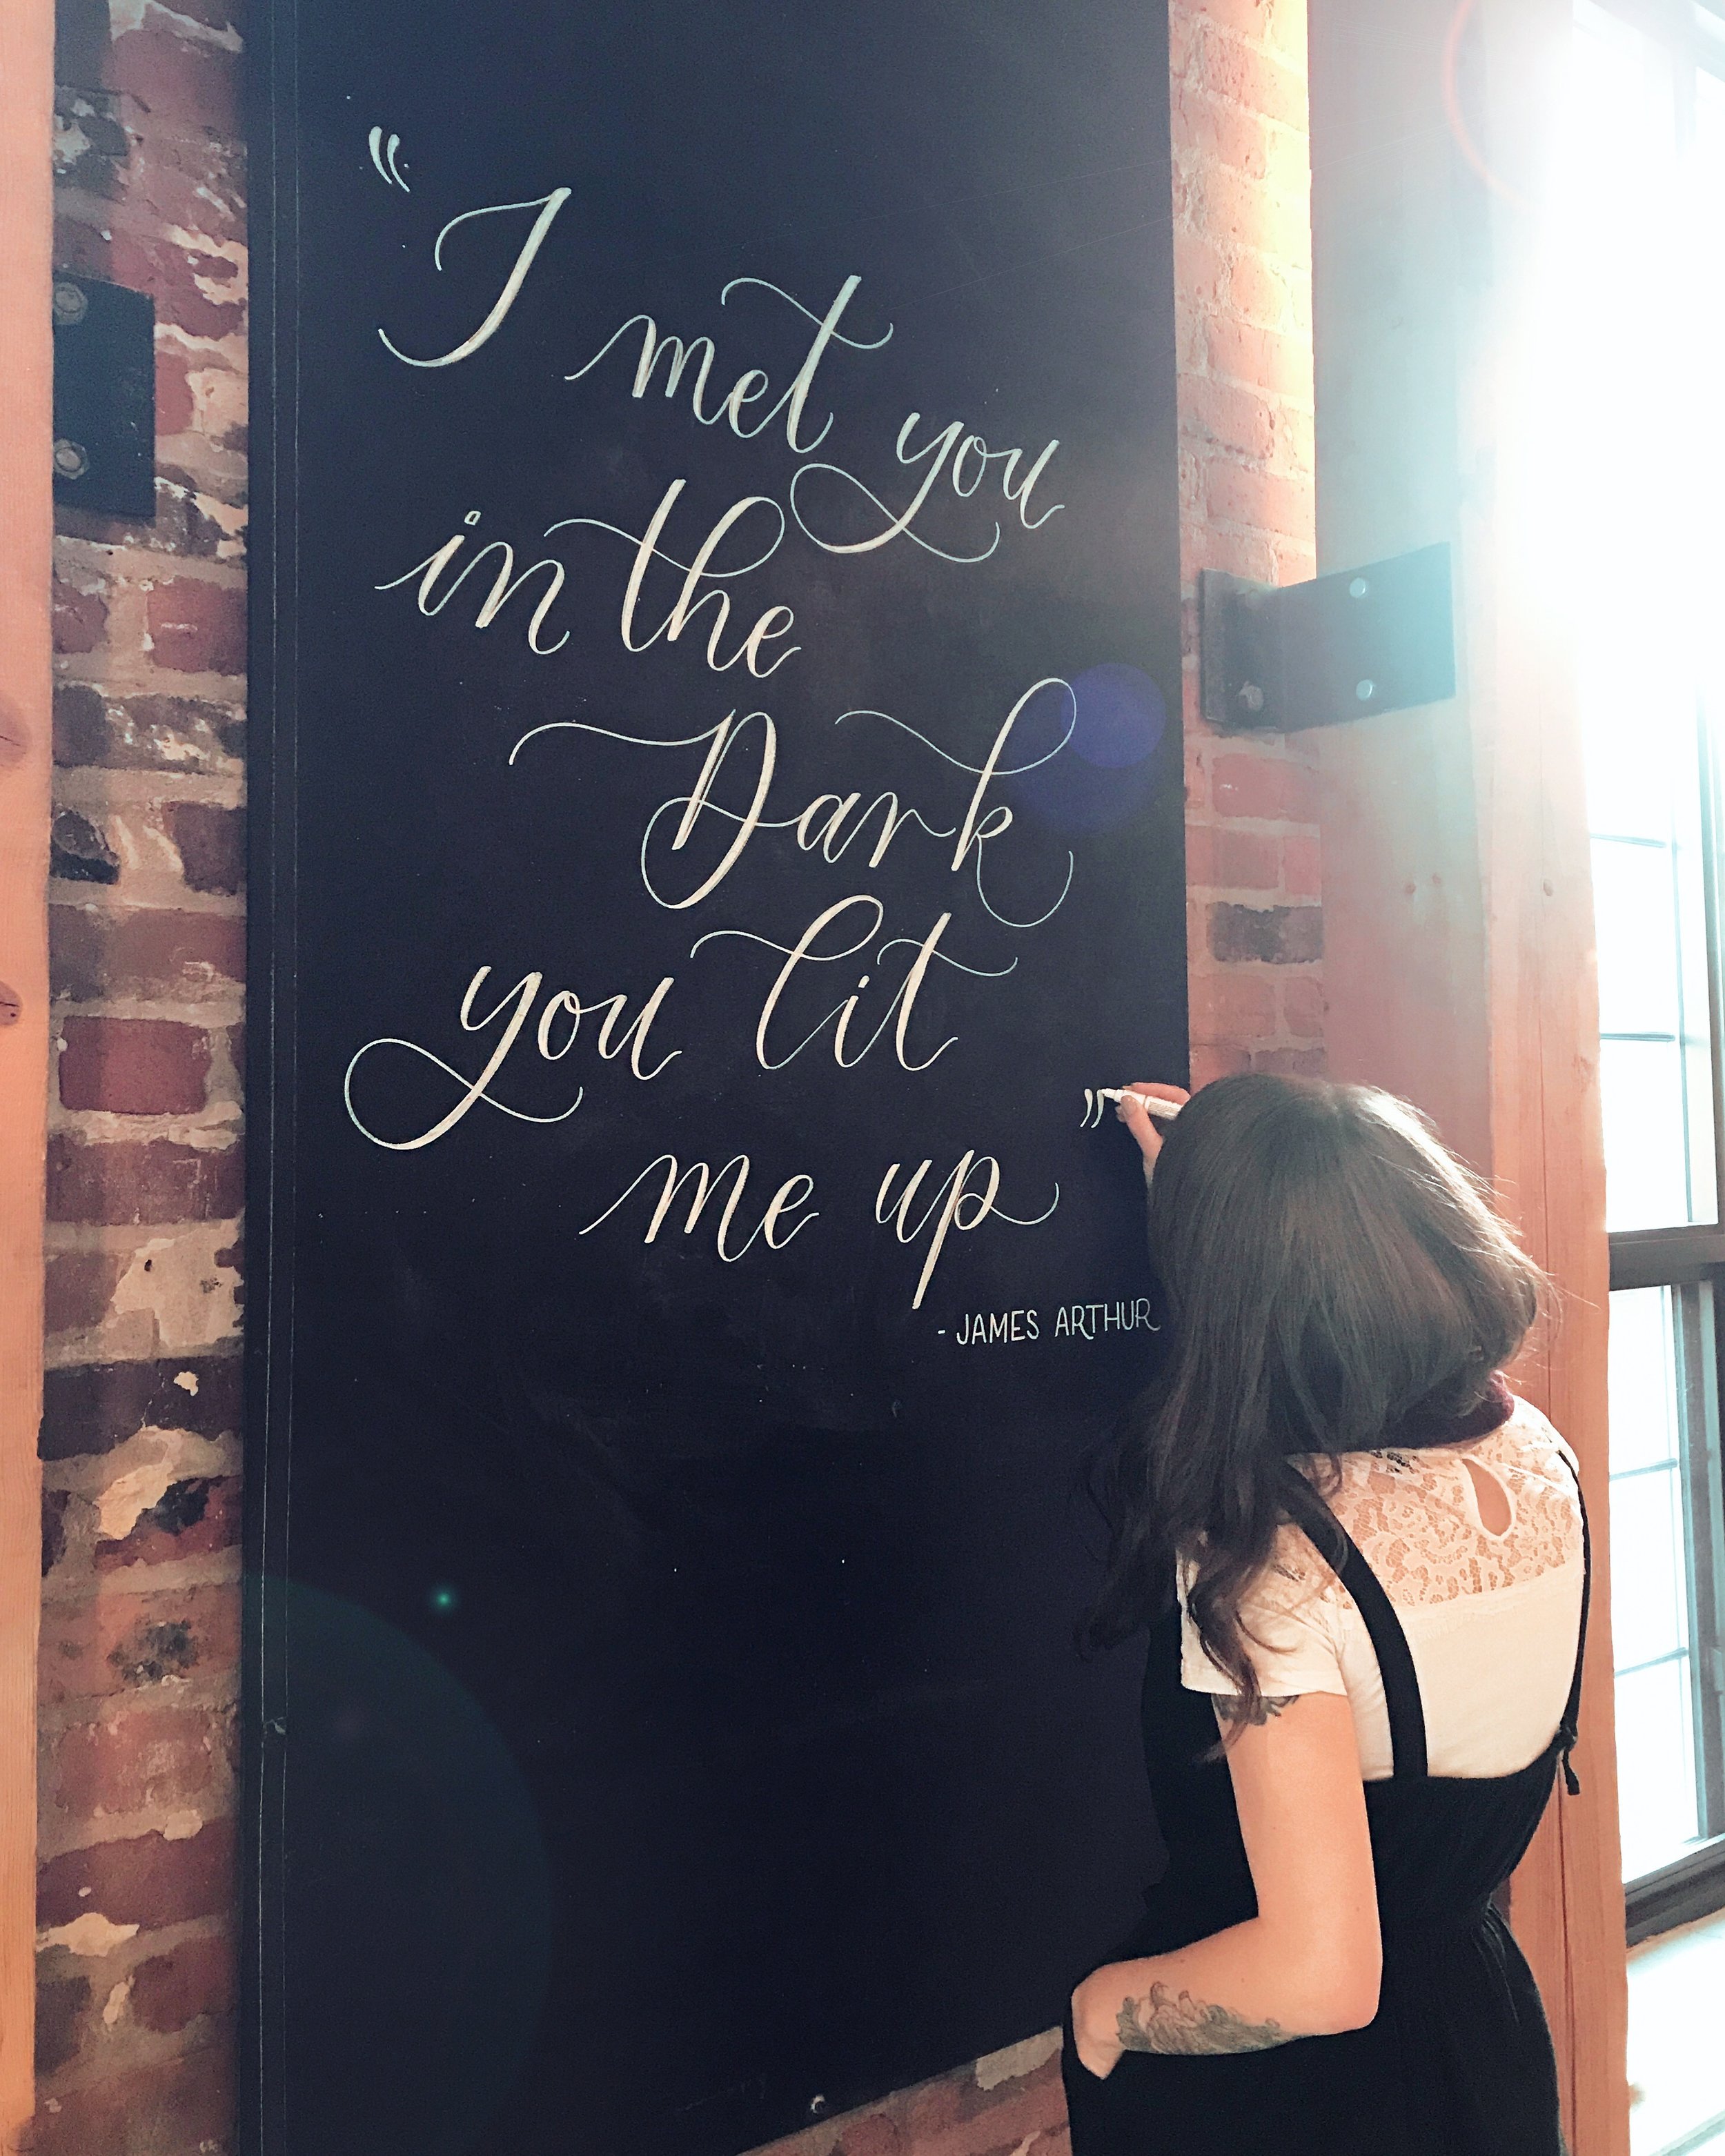 "I met you
in the
Dark
you lit
me up"
- JAMES ARTHUR